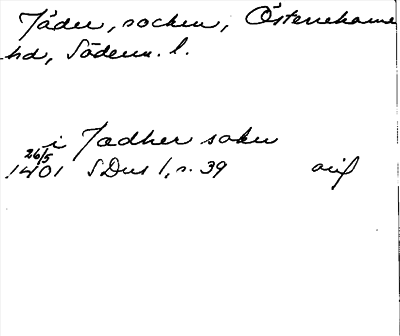 Jäder, socken, Österrekarne
hd, Söderm. l.
i Jadher sokn
26/5
1401 SDns 1, s. 39 avs